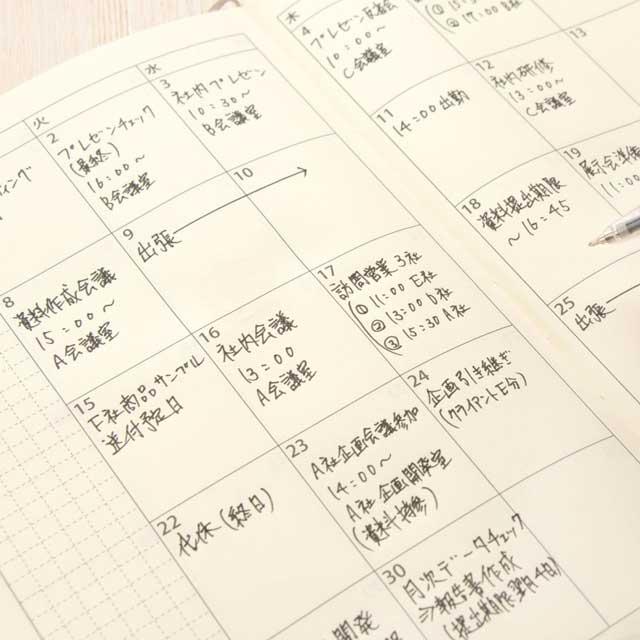 火
水
木
ィング
2
プレゼンチェック
(最終)
16:00〜
B会議室
3
社内プレゼン
10:30〜
B会議室
4
10:00〜
C会議室
8
資料作成会議
15:00〜
A会議室
9
出張
10
11
14:00出勤
12
社内研修
13:00〜
C会議室
13
15
E社商品サンプル
送付予定日
16
社内会議
13:00
A会議室
17
訪問営業3社
①11:00 E社
②13:00 D社
③15:30 A社
18
資料提出期限
〜16:45
19
展示会準備
11:00〜
22
代休(終日)
23
A社企画会議参加
14:00〜
A社企画開発室
(資料持参)
24
企画引き継ぎ
(クライアントE分)
25
出張
30
開発
月次データチェック
⇒報告書作成
(提出期限翌月4日)